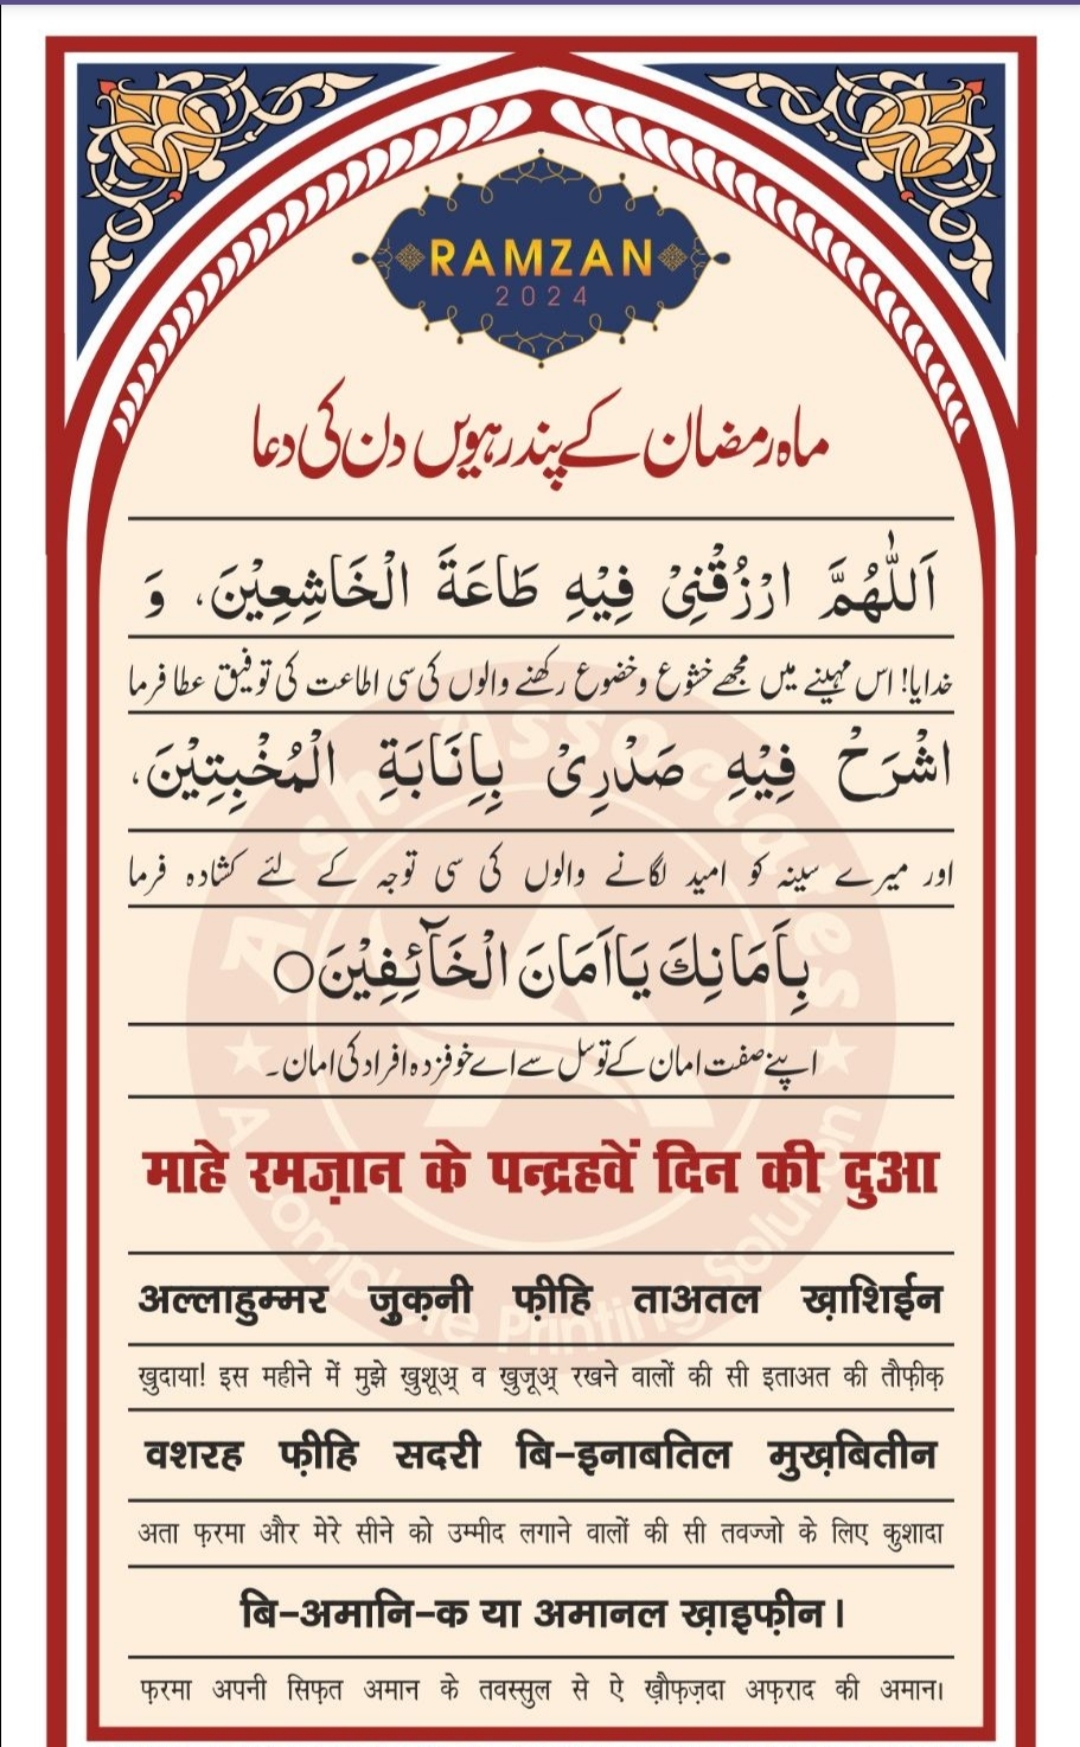 RAMZAN
2024
ماہ رمضان کے پندرہویں دن کی دعا
اَللّٰهُمَّ ارْزُقْنِیْ فِیْهِ طَاعَةَ الْخَاشِعِیْنَ، وَ
خدایا! اس مہینے میں مجھے خشوع و خضوع رکھنے والوں کی سی اطاعت کی توفیق عطا فرما
اشْرَحْ فِیْهِ صَدْرِیْ بِاِنَابَةِ الْمُخْبِتِیْنَ،
اور میرے سینہ کو امید لگانے والوں کی سی توجہ کے لئے کشادہ فرما
بِاَمَانِكَ یَااَمَانَ الْخَآئِفِیْنَ○
اپنے صفت امان کے توسل سے اے خوفزدہ افراد کی امان۔
माहे रमज़ान के पन्द्रहवें दिन की दुआ
अल्लाहुम्मर ज़ुक़नी फ़ीहि ताअतल ख़ाशिईन
ख़ुदाया! इस महीने में मुझे ख़ुशूअ् व ख़ुजूअ् रखने वालों की सी इताअत की तौफ़ीक़
वशरह फ़ीहि सदरी बि-इनाबतिल मुख़बितीन
अता फ़रमा और मेरे सीने को उम्मीद लगाने वालों की सी तवज्जो के लिए कुशादा
बि-अमानि-क या अमानल ख़ाइफ़ीन।
फ़रमा अपनी सिफ़त अमान के तवस्सुल से ऐ ख़ौफ़ज़दा अफ़राद की अमान।
Arsh Associates
A Complete Printing Solution